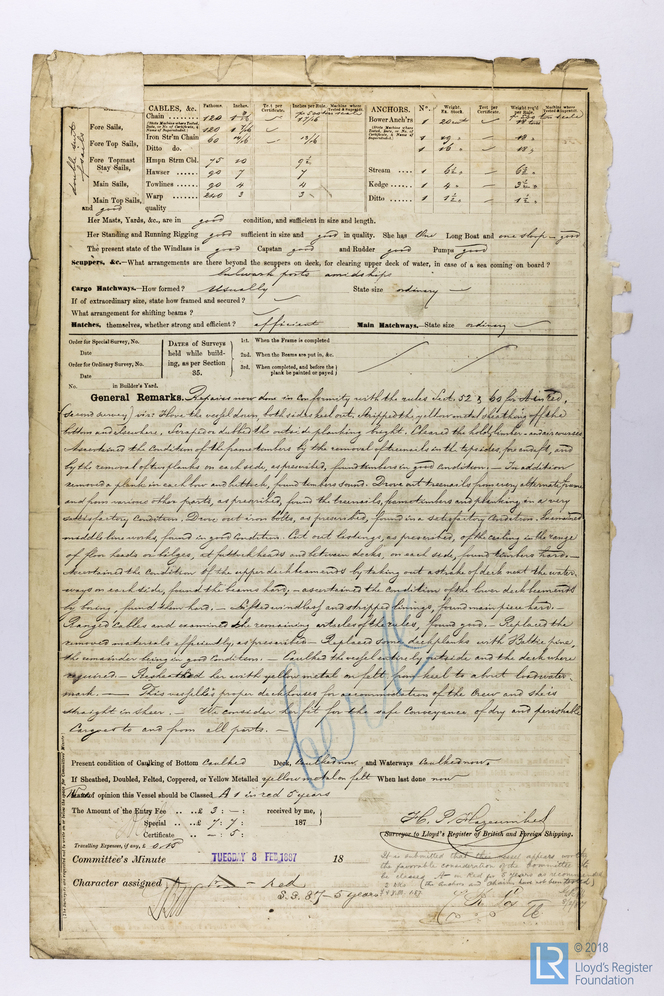 CABLES, &c. Fathoms. Inches. Test per Certificate. Inches per Rule. Machine where Tested & Suprntdt. ANCHORS. No. Weight. Ex. Stock Test per Certificate. Weight req'd per Rule. Machine where Tested & Suprntdt.
Chain 120 Bower Anch'rs 1
Fore Sails, 120
Iron Str'm Chain 60 1
Fore Top Sails, Ditto do. 1 16
Fore Topmast Stay Sails, Hmpn Strm Cbl. 75 10 Stream 1
Hawser 90 7 7
Main Sails, Towlines 90 4 4 Kedge 1 4
Main Top Sails, Warp 240 3 3 Ditto 1
and good quality
Her Masts, Yards, &c., are in good condition, and sufficient in size and length.
Her Standing and Running Rigging good sufficient in size and good in quality. She has One Long Boat and one sloop - good
The present state of the Windlass is good Capstan good and Rudder good Pumps good
Scuppers, &c.—What arrangements are there beyond the scuppers on deck, for clearing upper deck of water, in case of a sea coming on board?
bulwark ports amidships
Cargo Hatchways.—How formed? Usually State size ordinary
If of extraordinary size, state how framed and secured?
What arrangement for shifting beams?
Hatches, themselves, whether strong and efficient? efficient Main Hatchways.—State size ordinary
Order for Special Survey, No.
Date
Order for Ordinary Survey, No.
Date
No. in Builder's Yard.
DATES of Surveys held while building, as per Section 35.
1st. When the Frame is completed
2nd. When the Beams are put in, &c.
3rd. When completed, and before the plank be painted or payed
General Remarks. Repairs now done in Conformity with the rules Sect. 52 & 60 for A in red,
(second survey) viz: Hove the vessel down, both sides keel out. Stripped the yellow metal sheathing off the
bottom and elsewhere. Scraped & dubbed the outside planking bright. Cleared the hold,
Ascertained the Condition of the frame timbers by the removal of treenails in the topsides, fore and aft, and
by the removal of two planks on each side, as prescribed, found timbers in good Condition. — In addition
removed a plank in each bow and buttock, found timbers sound. Drove out treenails from every alternate frame
and from various other parts, as prescribed, found the treenails, frame timbers and planking in a very
satisfactory Condition. Drove out iron bolts, as prescribed, found in a satisfactory Condition. Examined
middle line works, found in good Condition. Cut out listings, as prescribed, of the ceiling in the range
of floor heads or bilges, at futtock heads and between decks, on each side, found timbers hard. —
Ascertained the Condition of the upper deck beam ends by taking out a strake of deck next the water-
ways on each side, found the beams hard, — ascertained the Condition of the lower deck beam ends
by boring, found them hard. — Lifted windlass and stripped linings, found main piece hard. —
Ranged Cables and examined the remaining articles of the rules, found good. Replaced the
removed materials efficiently, as prescribed — Replaced some deck planks with Baltic pine,
the remainder being in good Condition. — Caulked the vessel entirely outside and the deck where
required. — Resheathed her with yellow metal on felt from keel to about loadwater-
mark. — This vessel has proper deckhouses for accommodation of the Crew and she is
straight in sheer. — We consider her fit for the safe Conveyance of dry and perishable
Cargoes to and from all ports. —
Present condition of Caulking of Bottom Caulked Deck, Caulked now and Waterways Caulked now.
If Sheathed, Doubled, Felted, Coppered, or Yellow Metalled yellow metal on felt When last done now
opinion this Vessel should be Classed A 1 in red 5 years
The Amount of the Entry Fee .. £ 3 : — : received by me,
Special .. .. £ 7 : 7 : 187
Certificate .. — : 5 :
Travelling Expenses, if any, £
Surveyor to Lloyd's Register of British and Foreign Shipping.
Committee's Minute TUESDAY 8 FEB 1887 18
It is submitted that this vessel appears worthy
the favorable consideration of the Committee to
be classed A in Red for 5 years as recommended
Character assigned Red
S.S. 87 - 5 years
© 2018
LR
Lloyd's Register
Foundation